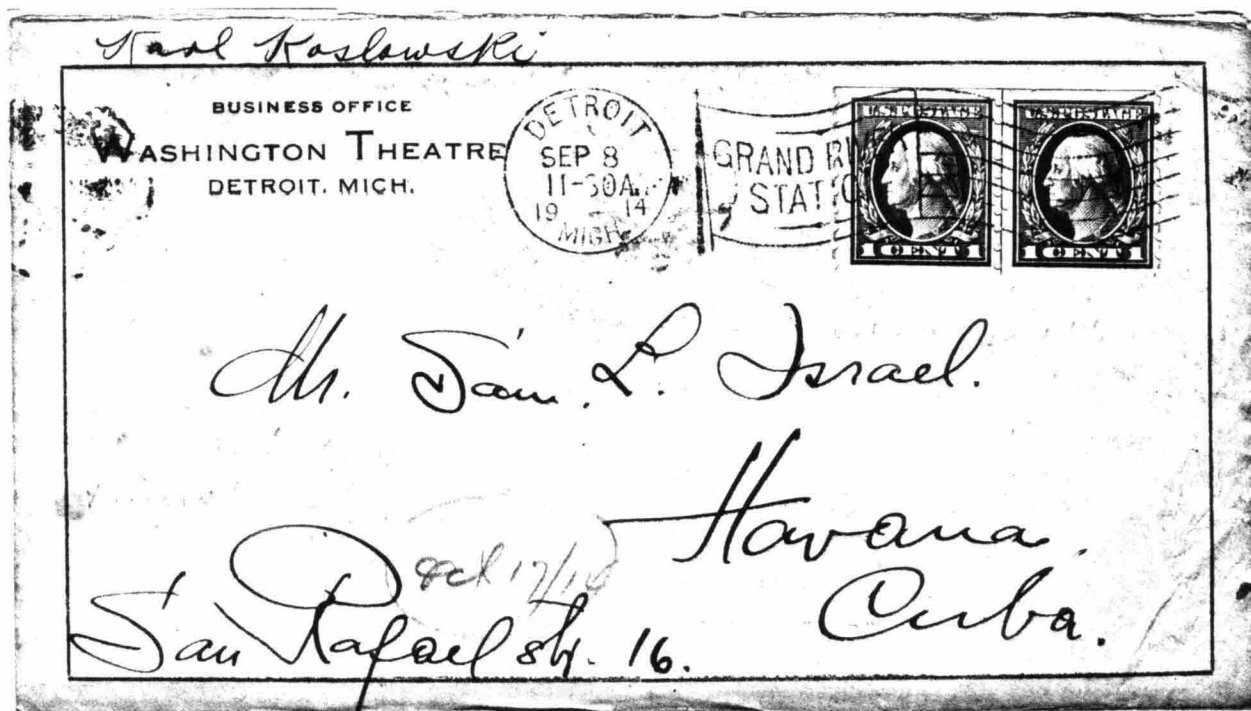 Karl Koslowski
BUSINESS OFFICE
WASHINGTON THEATRE
DETROIT. MICH.
DETROIT
SEP 8
11-30A
19 14
MICH.
GRAND RIV
STATIO
U.S. POSTAGE
1 CENT 1
U.S. POSTAGE
1 CENT 1
Mr. Sam. L. Israel.
Havana.
Cuba.
San Rafael str. 16.